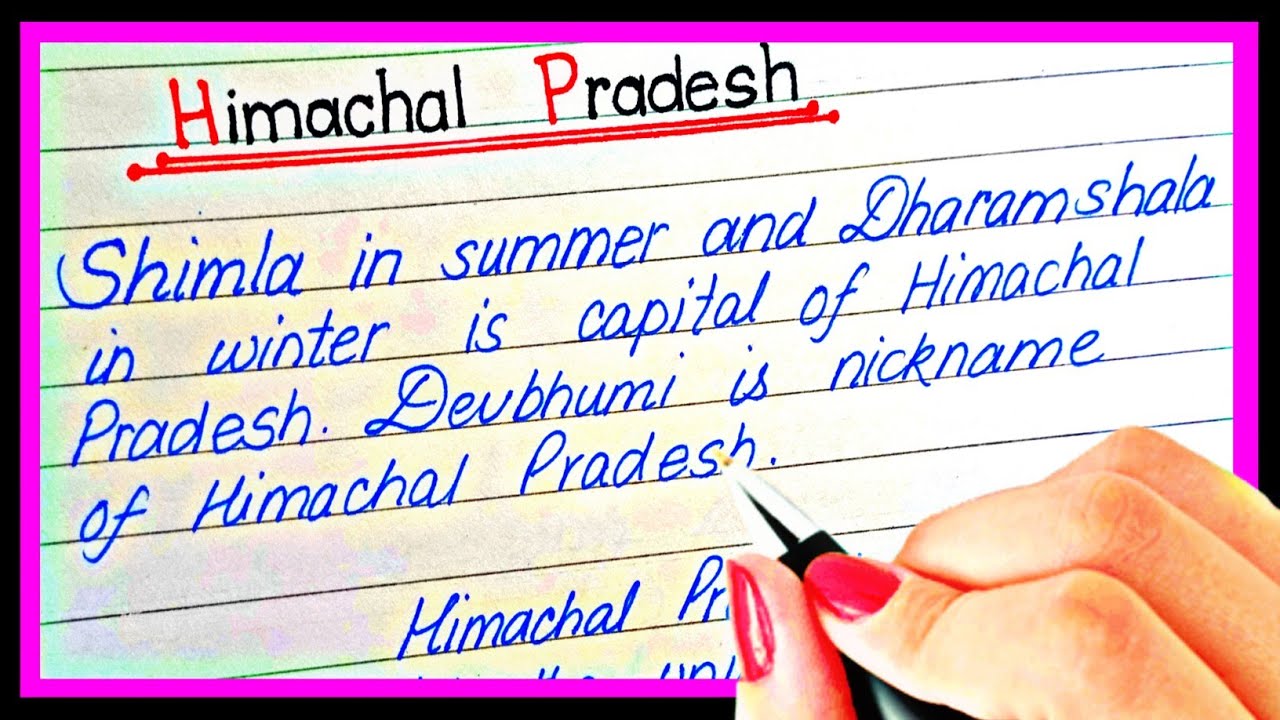 Himachal Pradesh
Shimla in summer and Dharamshala
in winter is capital of Himachal
Pradesh. Devbhumi is nickname
of Himachal Pradesh.
Himachal
the